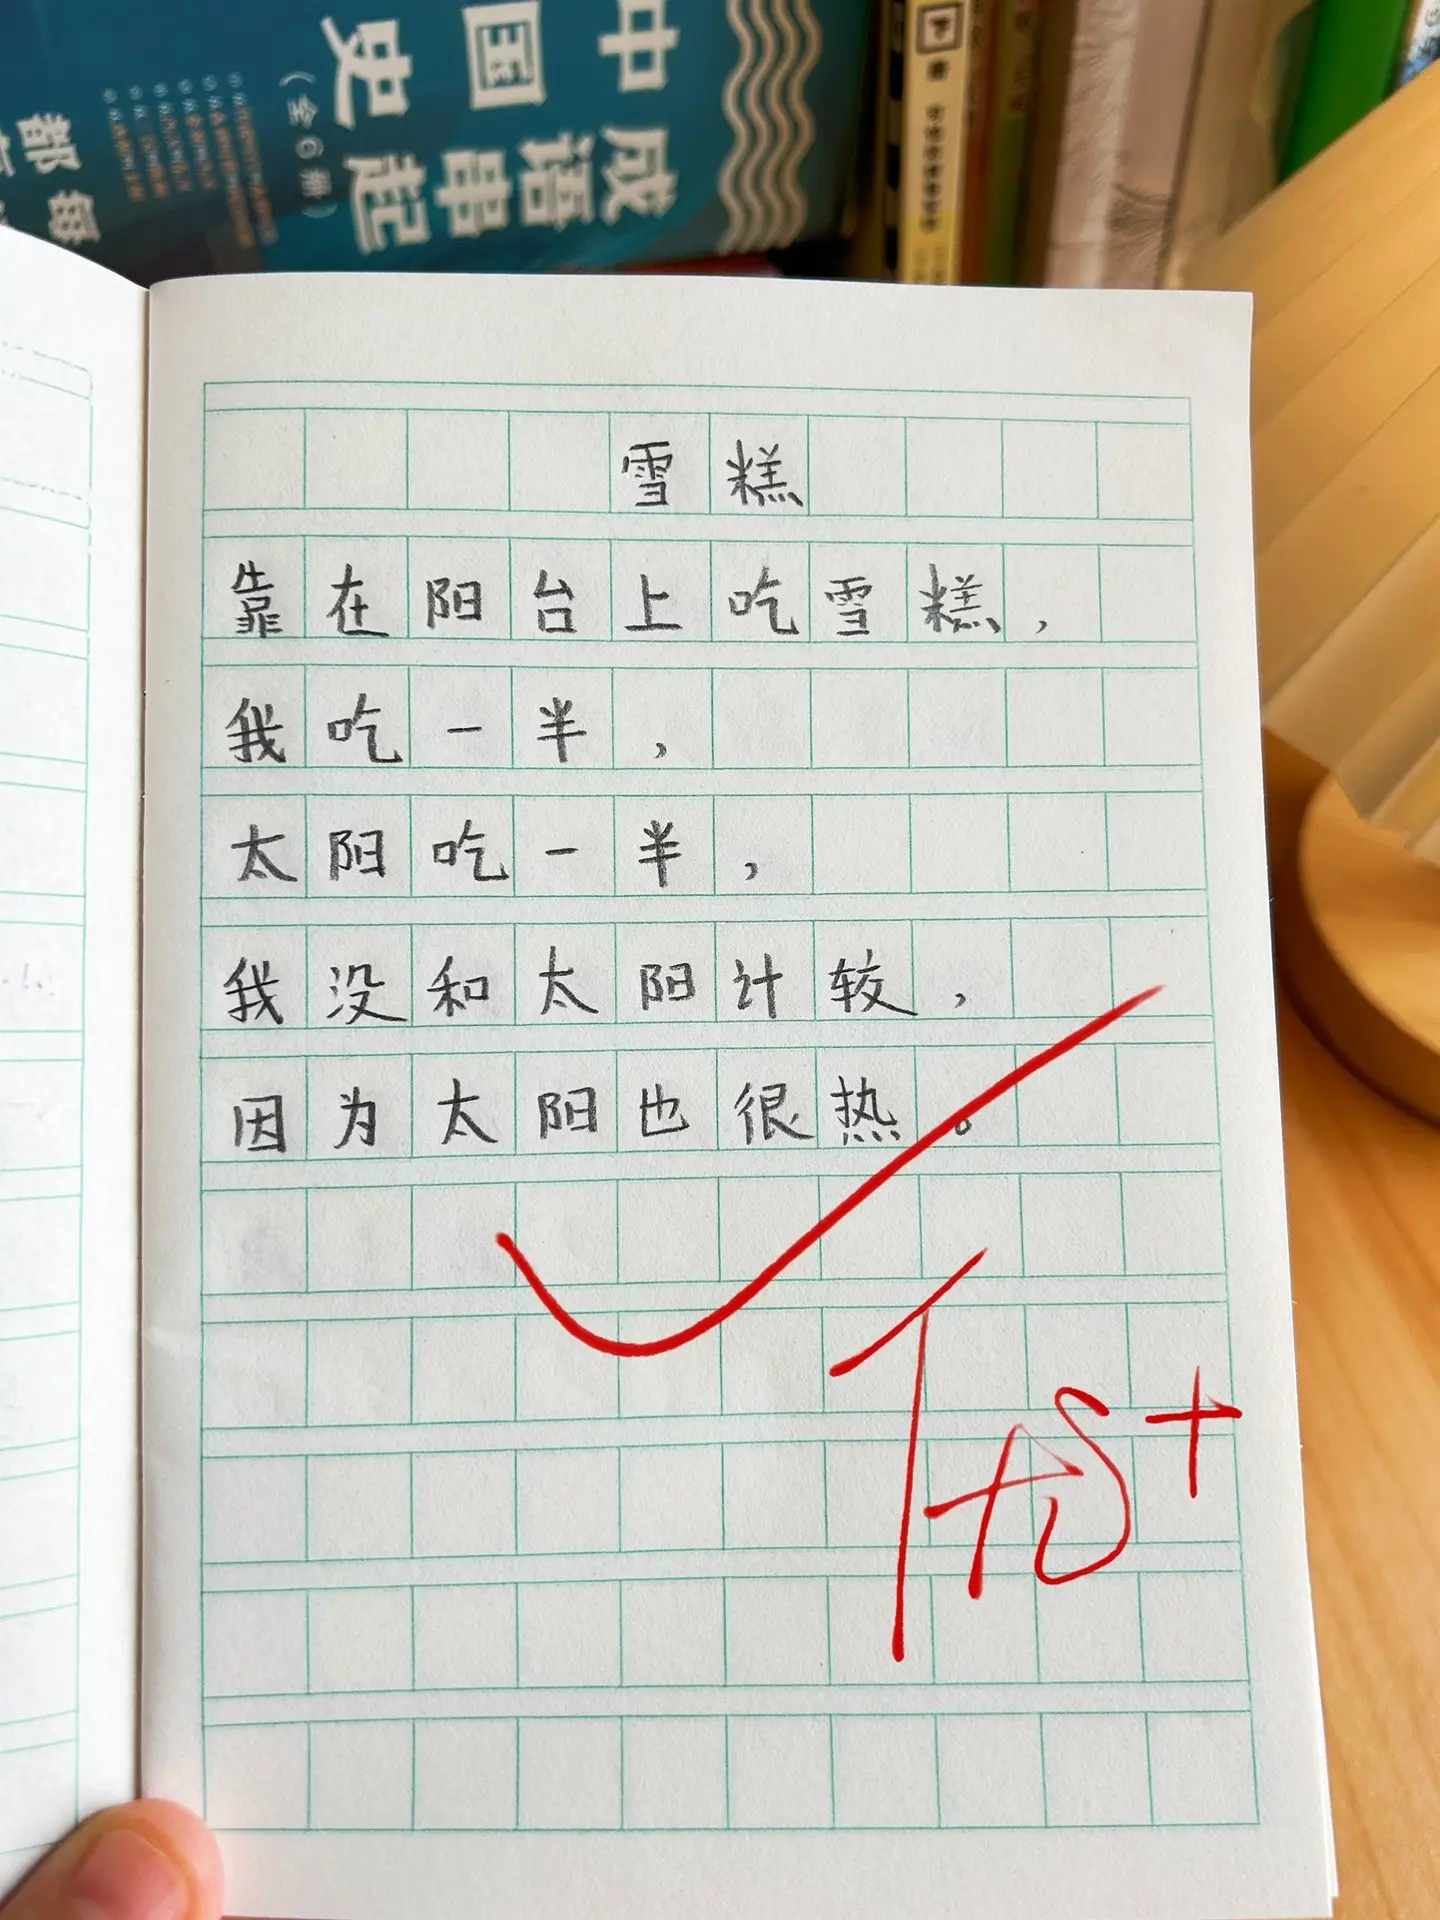 成语串起
中国史
(全6册)
雪糕
靠在阳台上吃雪糕，
我吃一半，
太阳吃一半，
我没和太阳计较，
因为太阳也很热。
优+